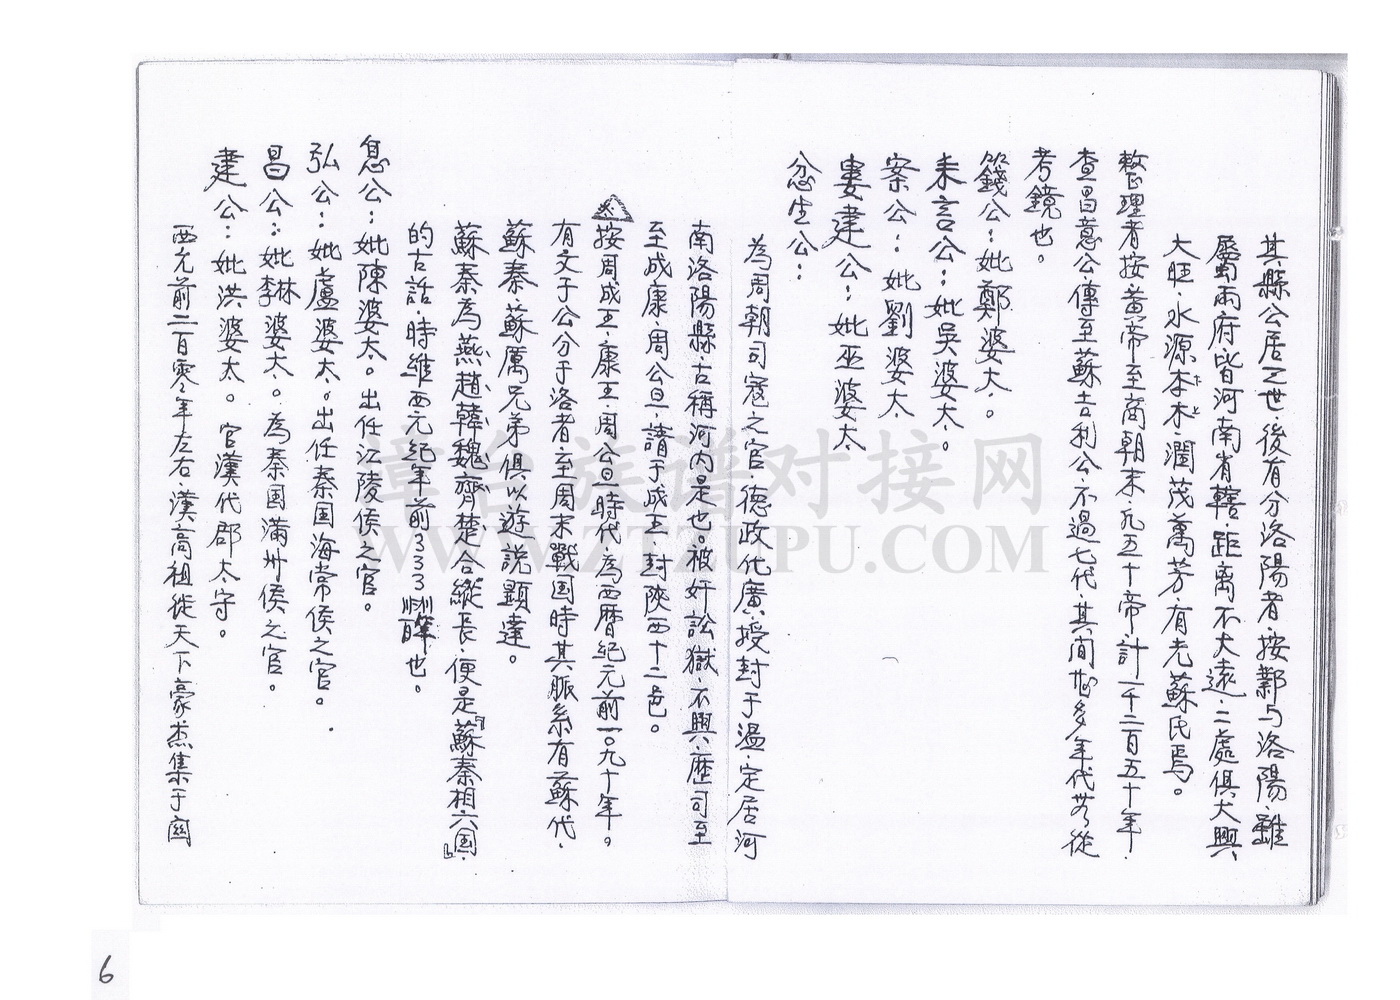 其縣公居之世後有分洛陽者按鄴与洛陽雖
屬兩府皆河南省轄距离不大遠二處俱大興
大旺水源本木潤茂萬芳有尤蘇氏焉。
整理者按黃帝至商朝末凡五十帝計一千二百五十年
查昌意公傳至蘇吉利公不過七代其間甚多年代世考從
考鏡也。
籛公：妣鄭婆太。
耒言公：妣吳婆太。
案公：妣劉婆太
婁建公：妣巫婆太
忿生公：
為周朝司寇之官德政化廣授封于溫定居河
南洛陽縣古稱河內是也。被奸訟獄不興歷司至
至成康周公旦請于成王封陝西十二邑。
按周成王康王周公旦時代為西曆紀元前一〇九十年。
有文于公分于洛者至周末戰国時其脈系有蘇代
蘇秦蘇厲兄弟俱以遊說顯達。
蘇秦為燕趙韓魏齊楚合縱長便是『蘇秦相六国』
的古話時維西元紀年前333年也。
息公：妣陳婆太。出任江陵侯之官。
弘公：妣盧婆太。出任秦国海常侯之官。
昌公：妣林婆太。為秦国滿州侯之官。
建公：妣洪婆太。官漢代郡太守。
西元前二百零年左右漢高祖徙天下豪杰集于関
6
漳台族谱对接网
WWW.ZTZUPU.COM